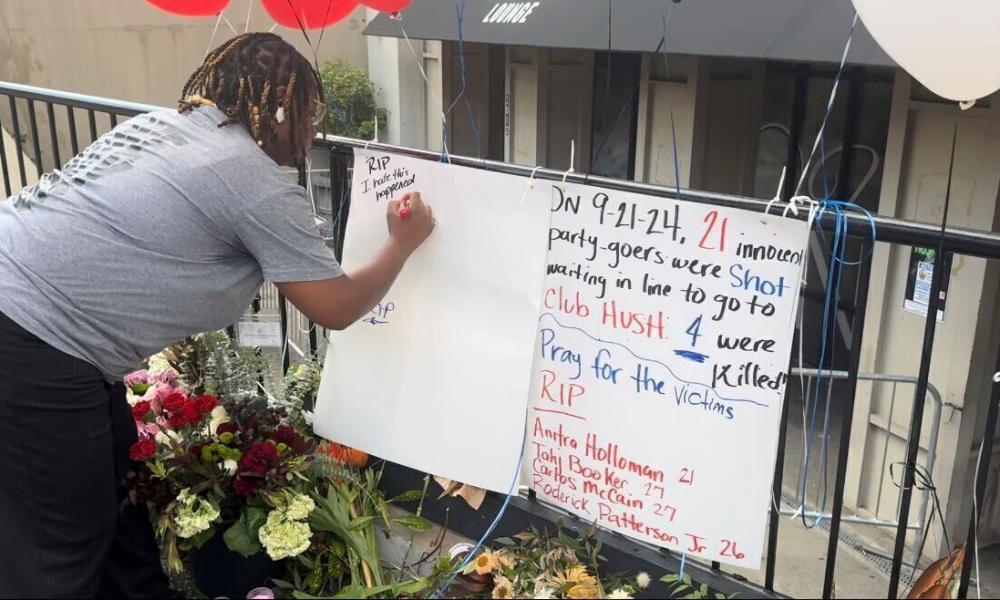 LOUNGE
RIP
I hate this
happened
RIP
ON 9-21-24, 21 innocent
party-goers were Shot
waiting in line to go to
Club HUSH. 4 were
Killed"
Pray for the victims
RIP
Anitra Holloman 21
Tahj Booker 27
Carlos McCain 27
Roderick Patterson Jr 26